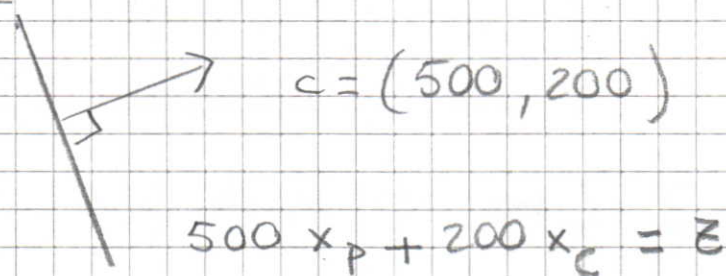 c = (500, 200)
500 x_p + 200 x_c = z